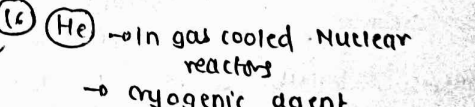 (16) He → In gas cooled Nuclear
reactors
→ cryogenic agent